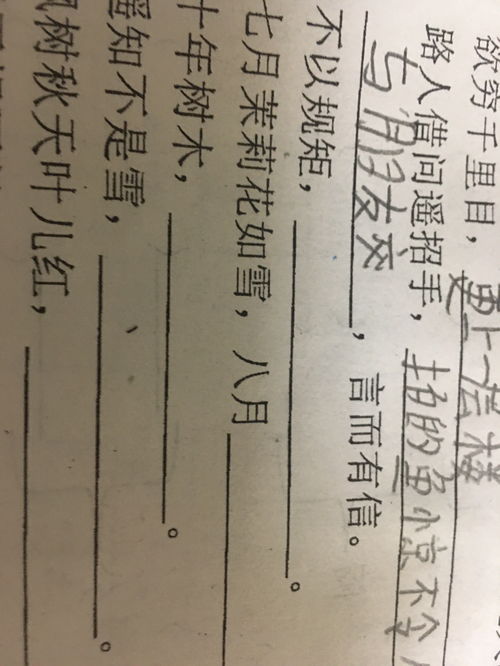 欲穷千里目，更上一层楼
路人借问遥招手，拍的鱼惊不
与朋友交，言而有信。
不以规矩，________。
七月茉莉花如雪，八月________
十年树木，________。
遥知不是雪，________。
枫树秋天叶儿红，________